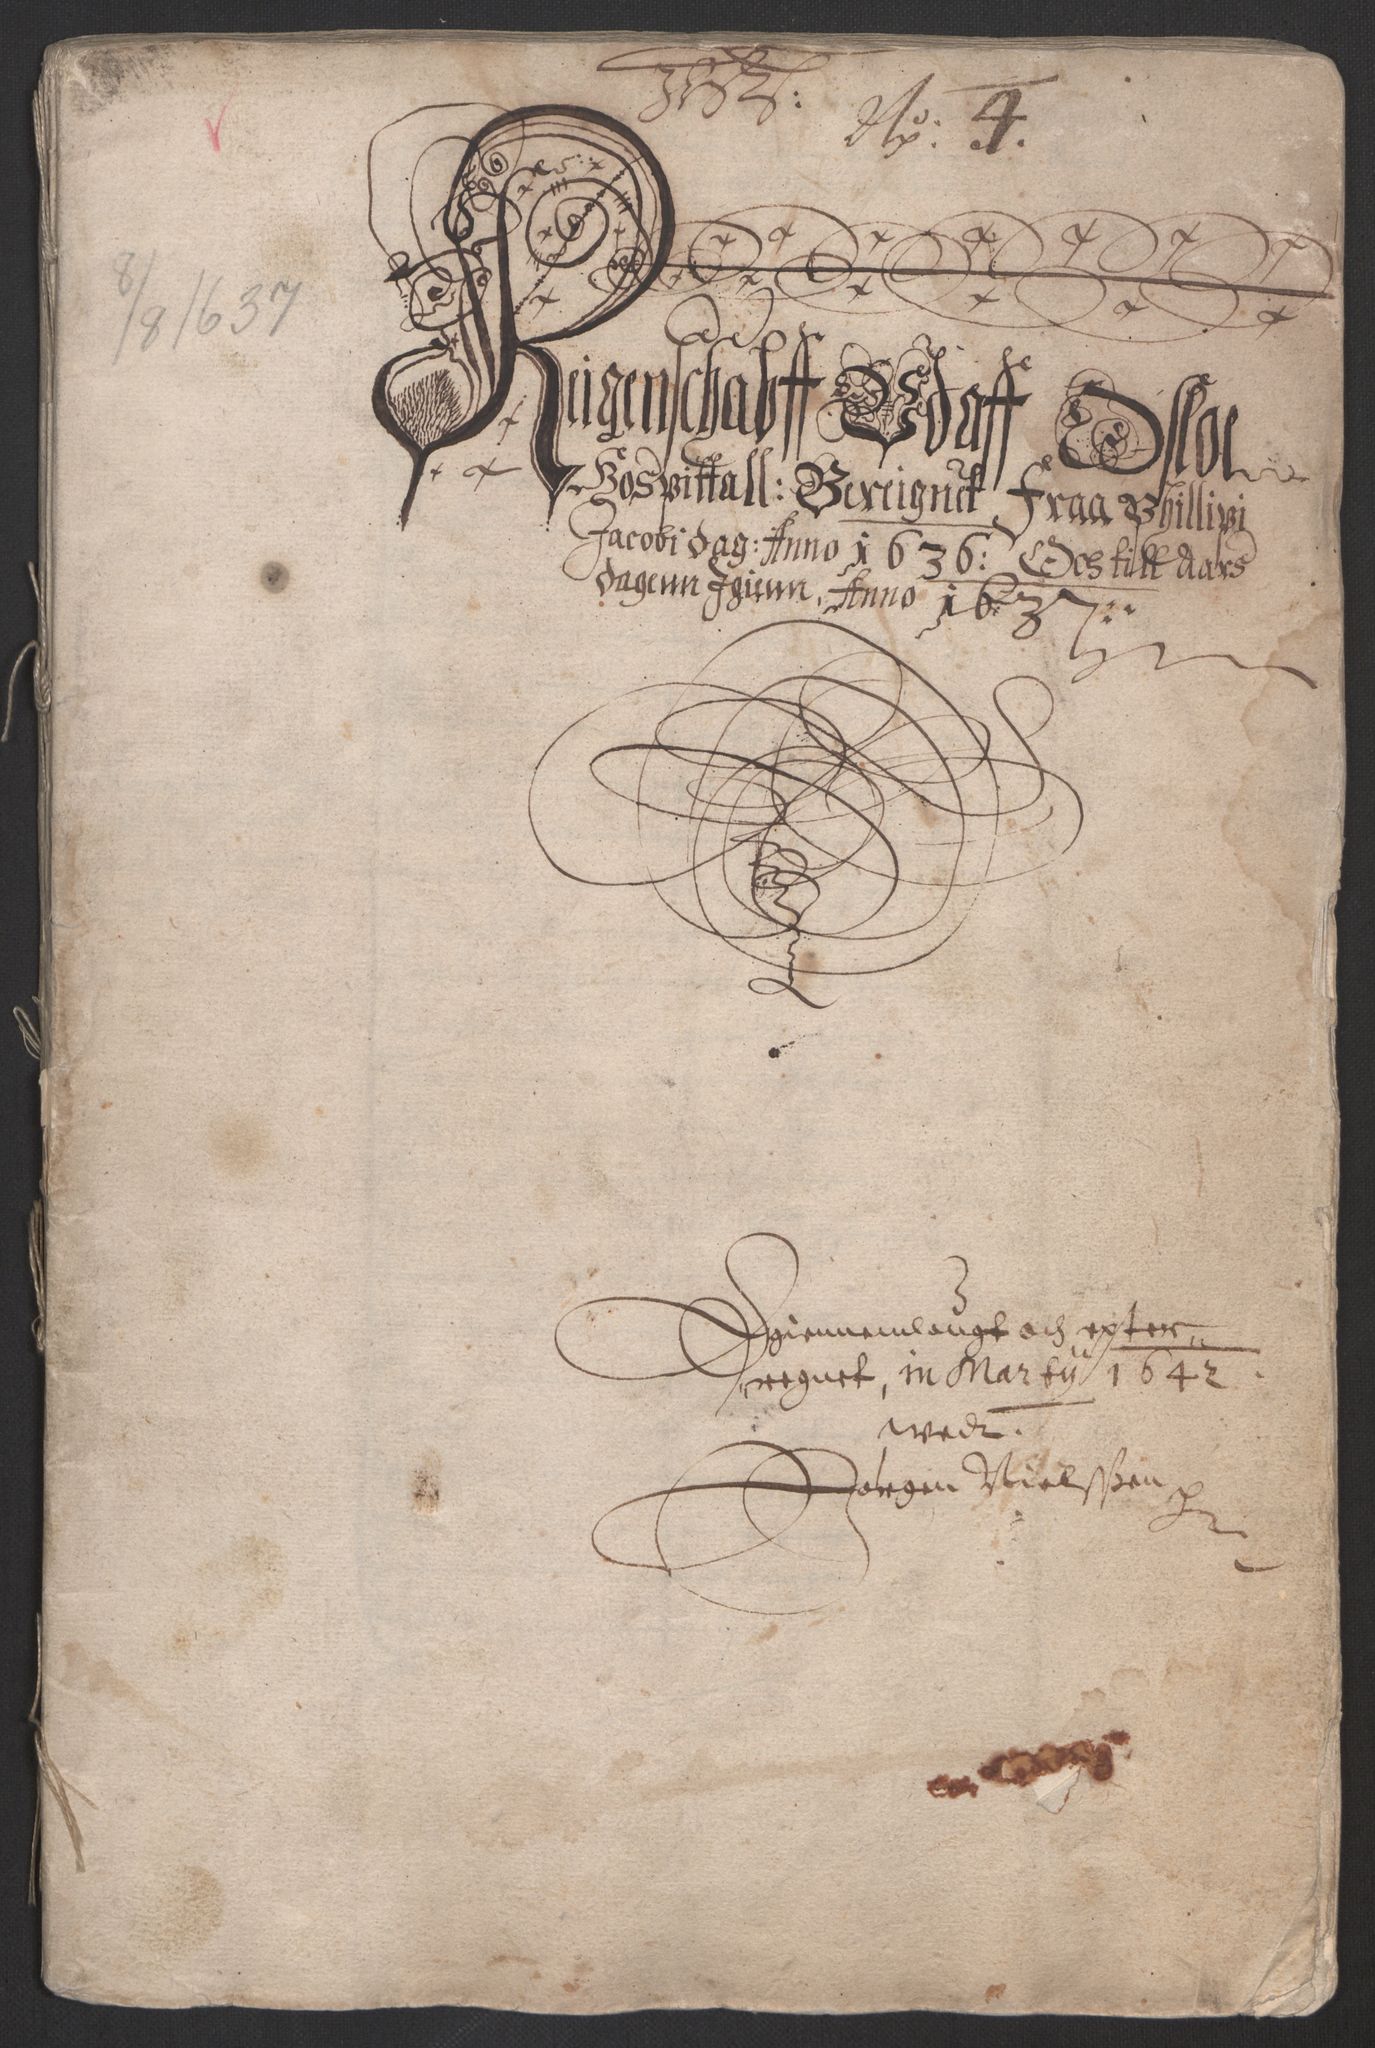 No: 4.
8/8 1637
Reigenschabff Udaff Osloe
Hospittall: Bereignett Fraa Phillippi
Jacobi dag: Anno 1636: Och till Aars
dagenn Igienn, Anno 1637:
Igiennemlaugt och epter
regnet, in Martij 1642
wed
Jørgen Nielsßen